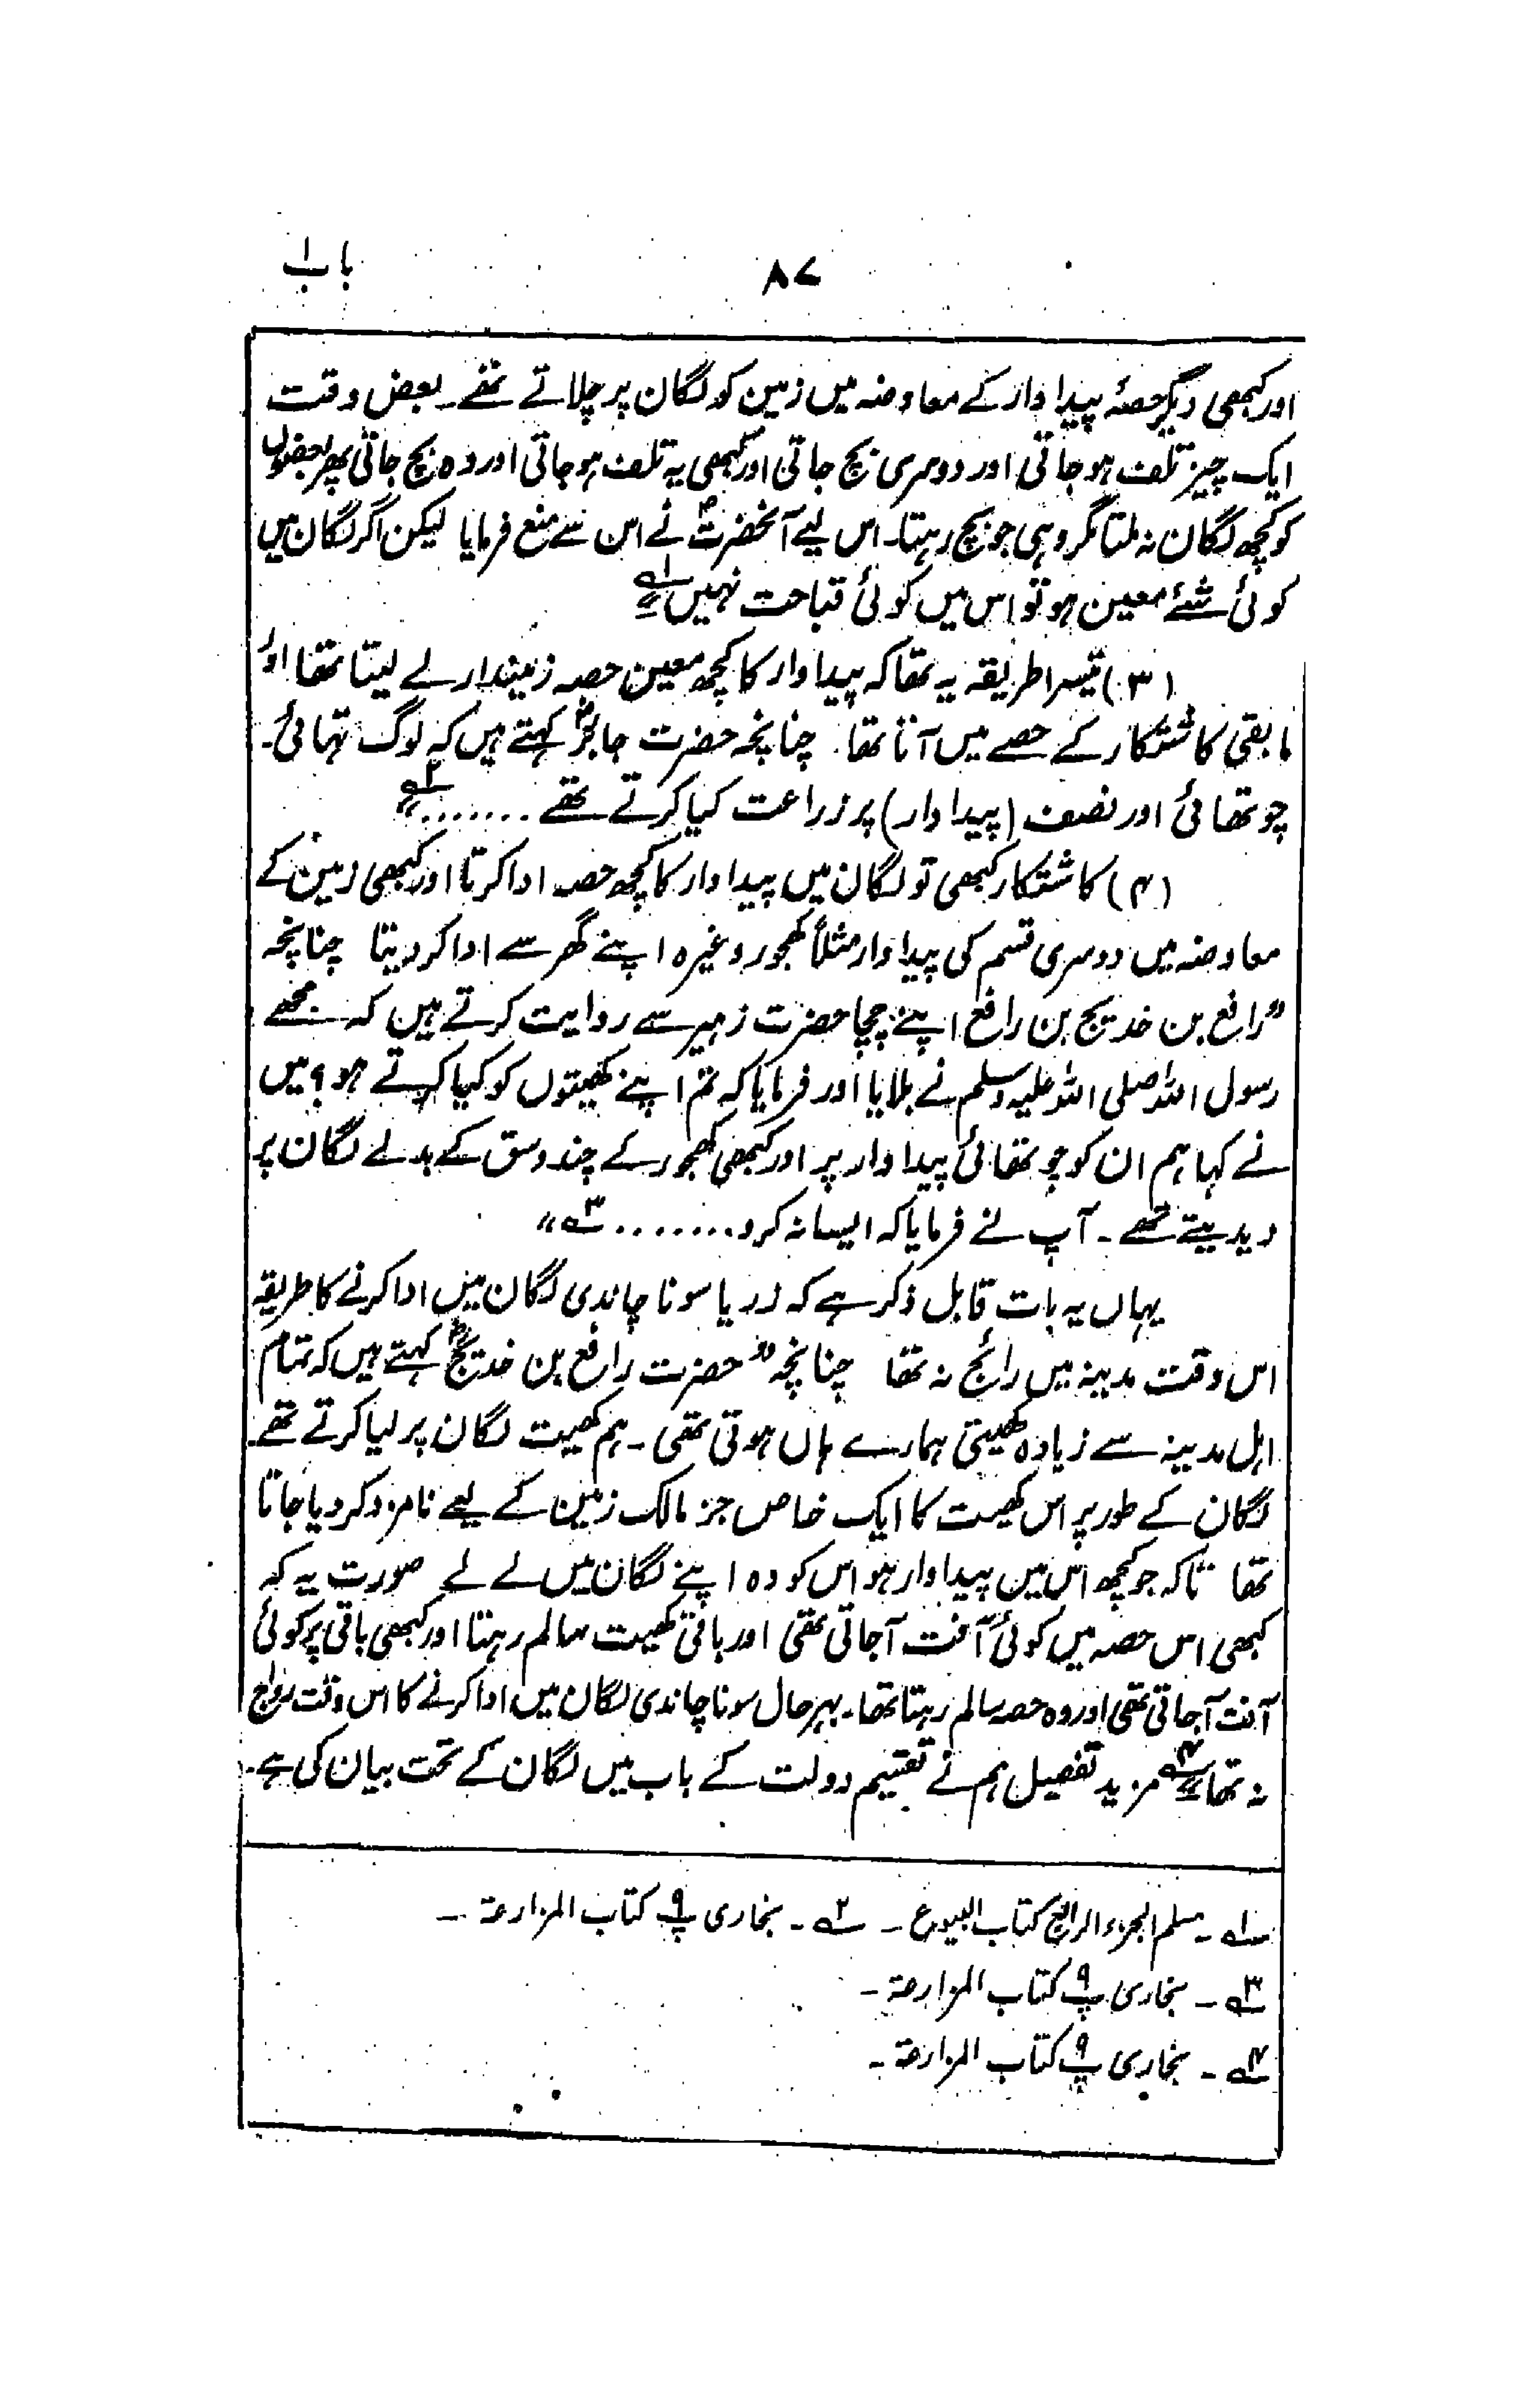 ۸۷
باب ۱
اور کبھی دیگر حصۂ پیداوار کے معاوضہ میں زمین کو لگان پر چلاتے تھے۔ بعض وقت
ایک چیز تلف ہو جاتی اور دوسری بچ جاتی اور کبھی یہ تلف ہو جاتی اور وہ بچ جاتی پھر بعضوں
کو کچھ لگان نہ ملتا مگر وہی جو بچ رہتا۔ اس لیے آنحضرتؐ نے اس سے منع فرمایا لیکن اگر لگان میں
کوئی شئے معین ہو تو اس میں کوئی قباحت نہیں ؂۱"
(۳) تیسرا طریقہ یہ تھا کہ پیداوار کا کچھ معین حصہ زمیندار لے لیتا تھا اور
مابقی کاشتکار کے حصے میں آتا تھا۔ چنانچہ حضرت جابرؓ کہتے ہیں کہ لوگ تہائی۔
چوتھائی اور نصف (پیداوار) پر زراعت کیا کرتے تھے ....... ؂۲"
(۴) کاشتکار کبھی تو لگان میں پیداوار کا کچھ حصہ ادا کرتا اور کبھی زمین کے
معاوضہ میں دوسری قسم کی پیداوار مثلاً کھجور وغیرہ اپنے گھر سے ادا کر دیتا چنانچہ
"رافع بن خدیج بن رافع اپنے چچا حضرت زہیر سے روایت کرتے ہیں کہ مجھے
رسول اللہ صلی اللہ علیہ وسلم نے بلایا اور فرمایا کہ تم اپنے کھیتوں کو کیا کرتے ہو؟ میں
نے کہا ہم ان کو چوتھائی پیداوار پر اور کبھی کھجور کے چند وسق کے بدلے لگان پر
دیدیتے تھے۔ آپ نے فرمایا کہ ایسا نہ کرو....... ؂۳"
یہاں یہ بات قابل ذکر ہے کہ زر یا سونا چاندی لگان میں ادا کرنے کا طریقہ
اس وقت مدینہ میں رائج نہ تھا چنانچہ "حضرت رافع بن خدیجؓ کہتے ہیں کہ تمام
اہل مدینہ سے زیادہ کھیتی ہمارے ہاں ہوتی تھی۔ ہم کھیت لگان پر لیا کرتے تھے۔
لگان کے طور پر اس کھیت کا ایک خاص جز مالک زمین کے لیے نامزد کر دیا جاتا
تھا تاکہ جو کچھ اس میں پیداوار ہو اس کو وہ اپنے لگان میں لے لے صورت یہ کہ
کبھی اس حصہ میں کوئی آفت آجاتی تھی اور باقی کھیت سالم رہتا اور کبھی باقی پر کوئی
آفت آجاتی تھی اور وہ حصہ سالم رہتا تھا۔ بہر حال سونا چاندی لگان میں ادا کرنے کا اس وقت رواج
نہ تھا ؂۴" مزید تفصیل ہم نے تقسیم دولت کے باب میں لگان کے تحت بیان کی ہے۔
؂۱ ۔ مسلم الجزء الرابع کتاب البیوع ۔ ؂۲ ۔ بخاری پ۹ کتاب المزارعۃ ۔
؂۳ ۔ بخاری پ۹ کتاب المزارعۃ ۔
؂۴ ۔ بخاری پ۹ کتاب المزارعۃ ۔